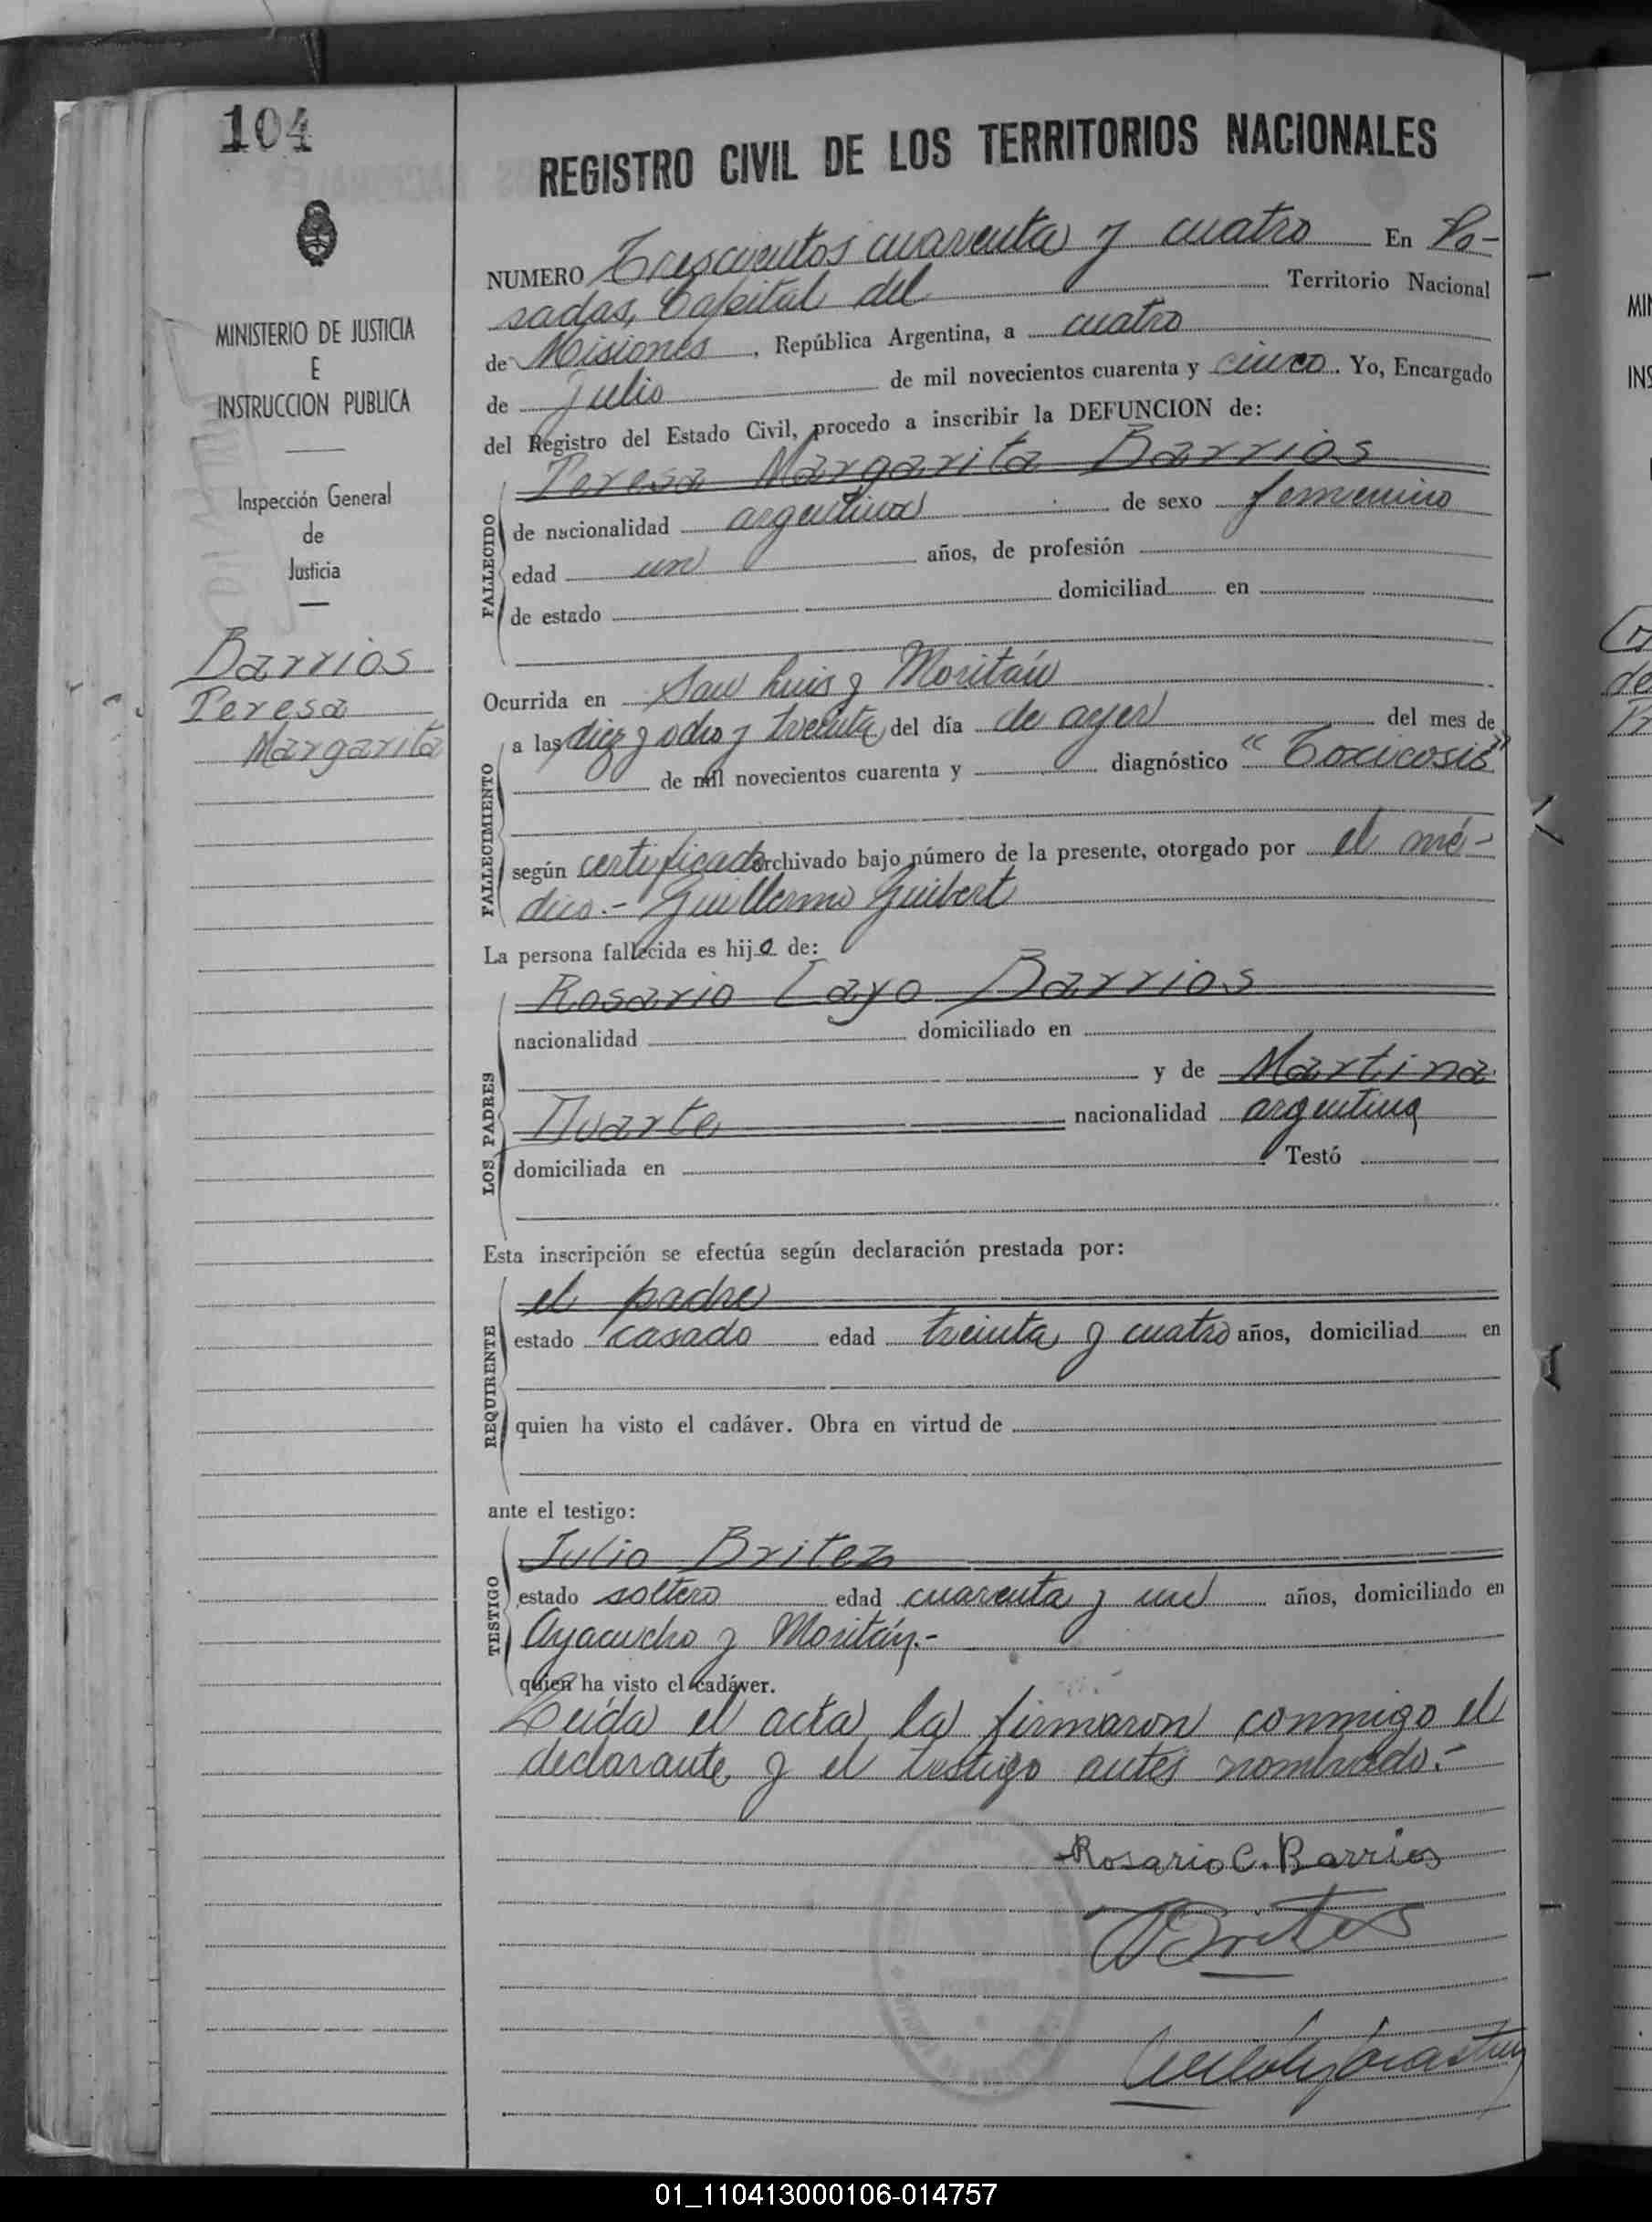 104
MINISTERIO DE JUSTICIA
E
INSTRUCCION PUBLICA
Inspección General
de
Justicia
Barrios
Teresa
Margarita
REGISTRO CIVIL DE LOS TERRITORIOS NACIONALES
NUMERO Trescientos cuarenta y cuatro En Po-
sadas, Capital del Territorio Nacional
de Misiones, República Argentina, a cuatro
de Julio de mil novecientos cuarenta y cinco. Yo, Encargado
del Registro del Estado Civil, procedo a inscribir la DEFUNCION de:
FALLECIDO
Teresa Margarita Barrios
de nacionalidad argentina de sexo femenino
edad un años, de profesión
de estado domiciliad en
Ocurrida en San Luis y Moritán
FALLECIMIENTO
a las diez y ocho y treinta del día de ayer del mes de
de mil novecientos cuarenta y diagnóstico "Toxicosis"
según certificado archivado bajo número de la presente, otorgado por el mé-
dico.- Guillermo Guibert
La persona fallecida es hija de:
LOS PADRES
Rosario Cayo Barrios
nacionalidad domiciliado en
y de Martina
Duarte nacionalidad argentina
domiciliada en Testó
Esta inscripción se efectúa según declaración prestada por:
REQUIRENTE
el padre
estado casado edad treinta y cuatro años, domiciliad en
quien ha visto el cadáver. Obra en virtud de
ante el testigo:
TESTIGO
Julio Britez
estado soltero edad cuarenta y un años, domiciliado en
Ayacucho y Moritán.-
quien ha visto el cadáver.
Leída el acta la firmaron conmigo el
declarante y el testigo antes nombrado.-
Rosario C. Barrios
Britez
01_110413000106-014757